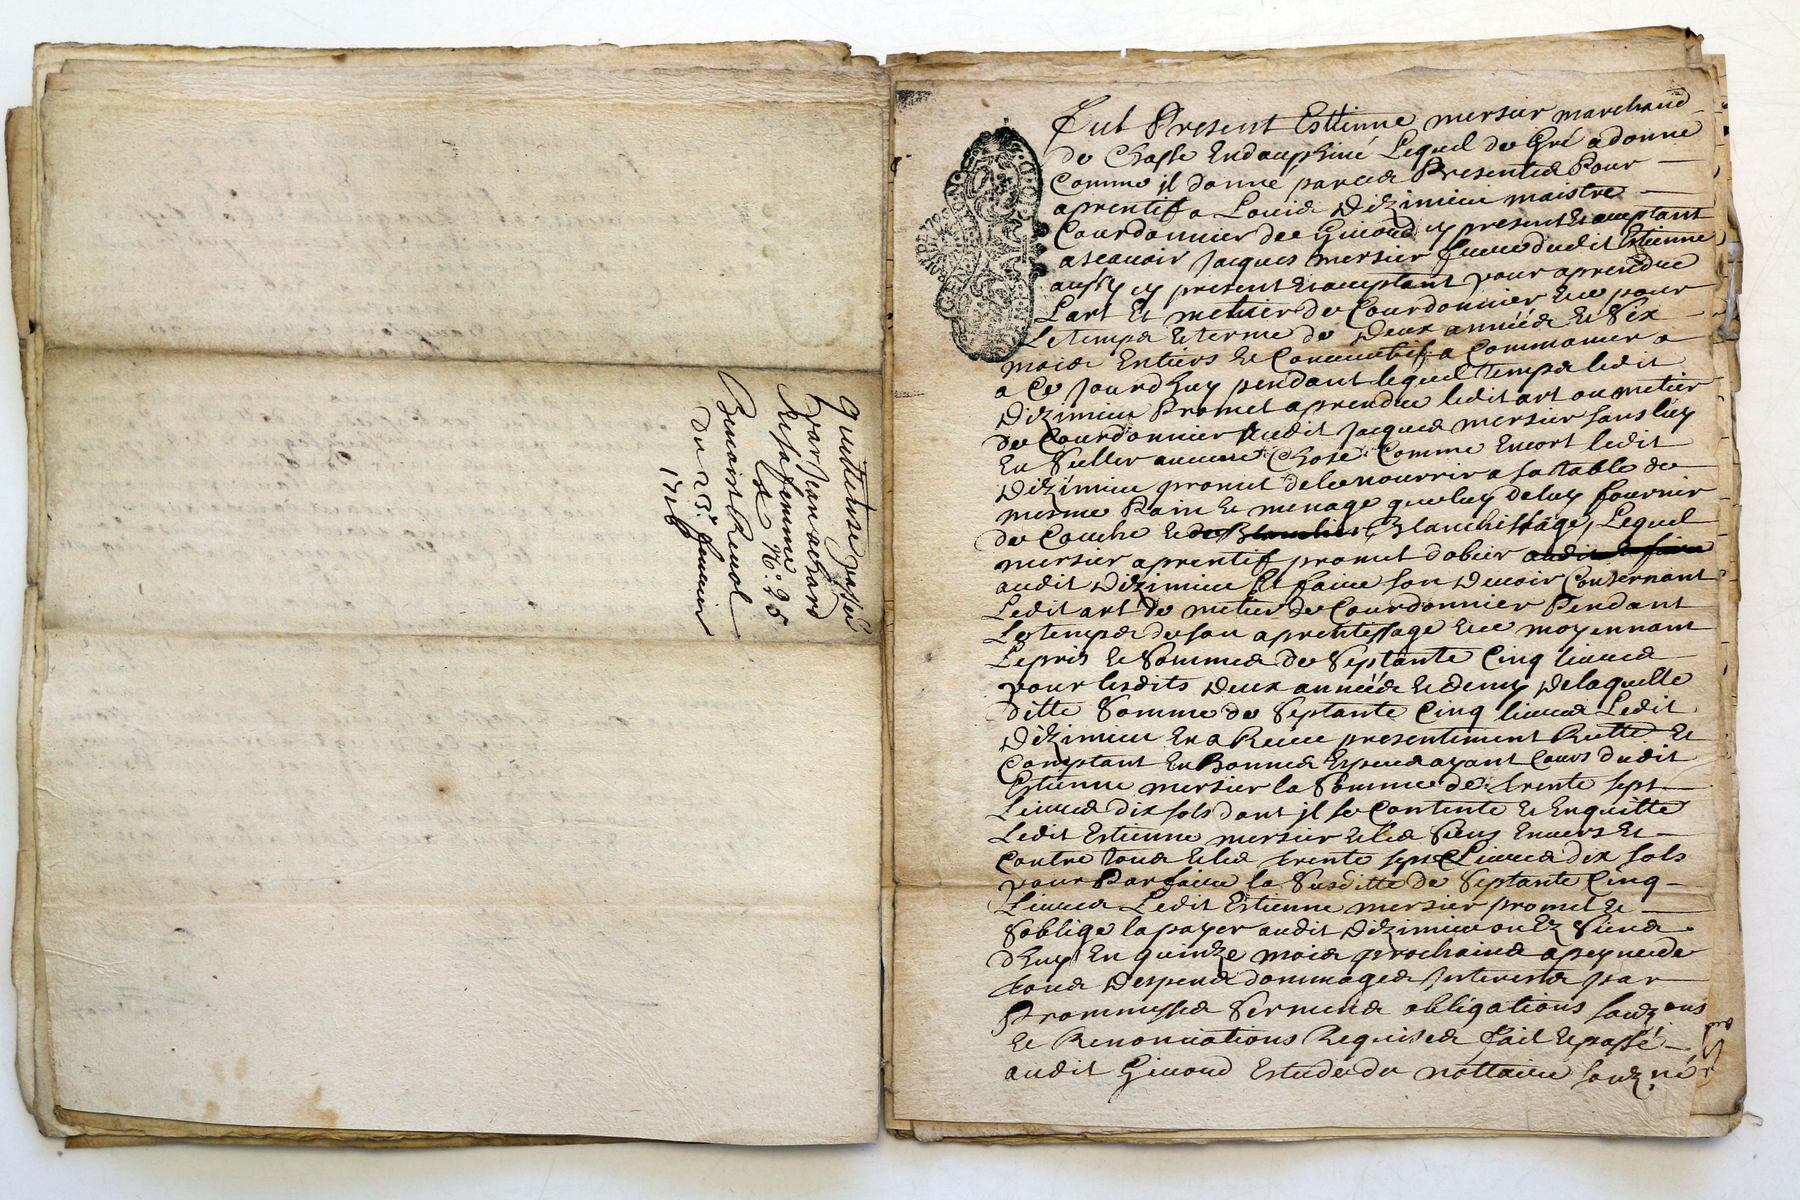 quittance passée
par Jean achard
et sa femme
a Mr.
Benoist
Du 23e Janvier
1726
Fut Present Estienne mersier marchand
de Chasse Endauphiné Lequel de Gré a donne
Comme jl donne par ces Presentes Pour
aprentif a Louis Dizimieu maistre
Courdonnier de Givord cy present et aceptant
ascavoir Jacques mersier dudit Estienne
aussy cy present et aceptant pour aprendre
Lart Et metier de Courdonnier Et ce pour
Le temps Et terme de Deux années Et Six
mois Entiers Et Consecutifs a Commancer a
a Ce Jourdhuy pendant lequel Temps ledit
Dizimieu Promet aprendre ledit art ou metier
de Courdonnier audit Jacques mersier sans luy
En Seller aucune Chose Comme Encort ledit
Dizimieu promet de le nourrir a sa table de
mesme Pain Et menage que luy de luy fournir
de Couche Et de Blanchissage, Lequel
mersier aprentif promet dobeir
audit Dizimieu Et faire son Devoir Consernant
Ledit art de metier de Courdonnier Pendant
Le temps de son aprentissage Et ce moyennant
Le pris Et Sommes de Septante Cinq livres
pour lesdits Deux années Et demy De laquelle
ditte Somme de Septante Cinq livres Ledit
Dizimieu En a Receu presentement Et
Comptant En Bonnes Especes ayant Cours dudit
Estienne mersier la Somme de trente sept
Livres dix sols dont jl se Contente Et Enquitte
Ledit Estienne mersier Et les Siens Envers Et
Contre tous Et les trente sept Livres dix sols
pour Parfaire la Susditte de Septante Cinq
Livres Ledit Estienne mersier promet Et
Soblige la payer audit Dizimieu ou Ez Siens
dhuy En quinze mois prochains a peyne de
tous Despens dommages Interests par
Prommesses Serments obligations
Et Renonciations Requises Fait Et passé
audit Givord Estude du nottaire